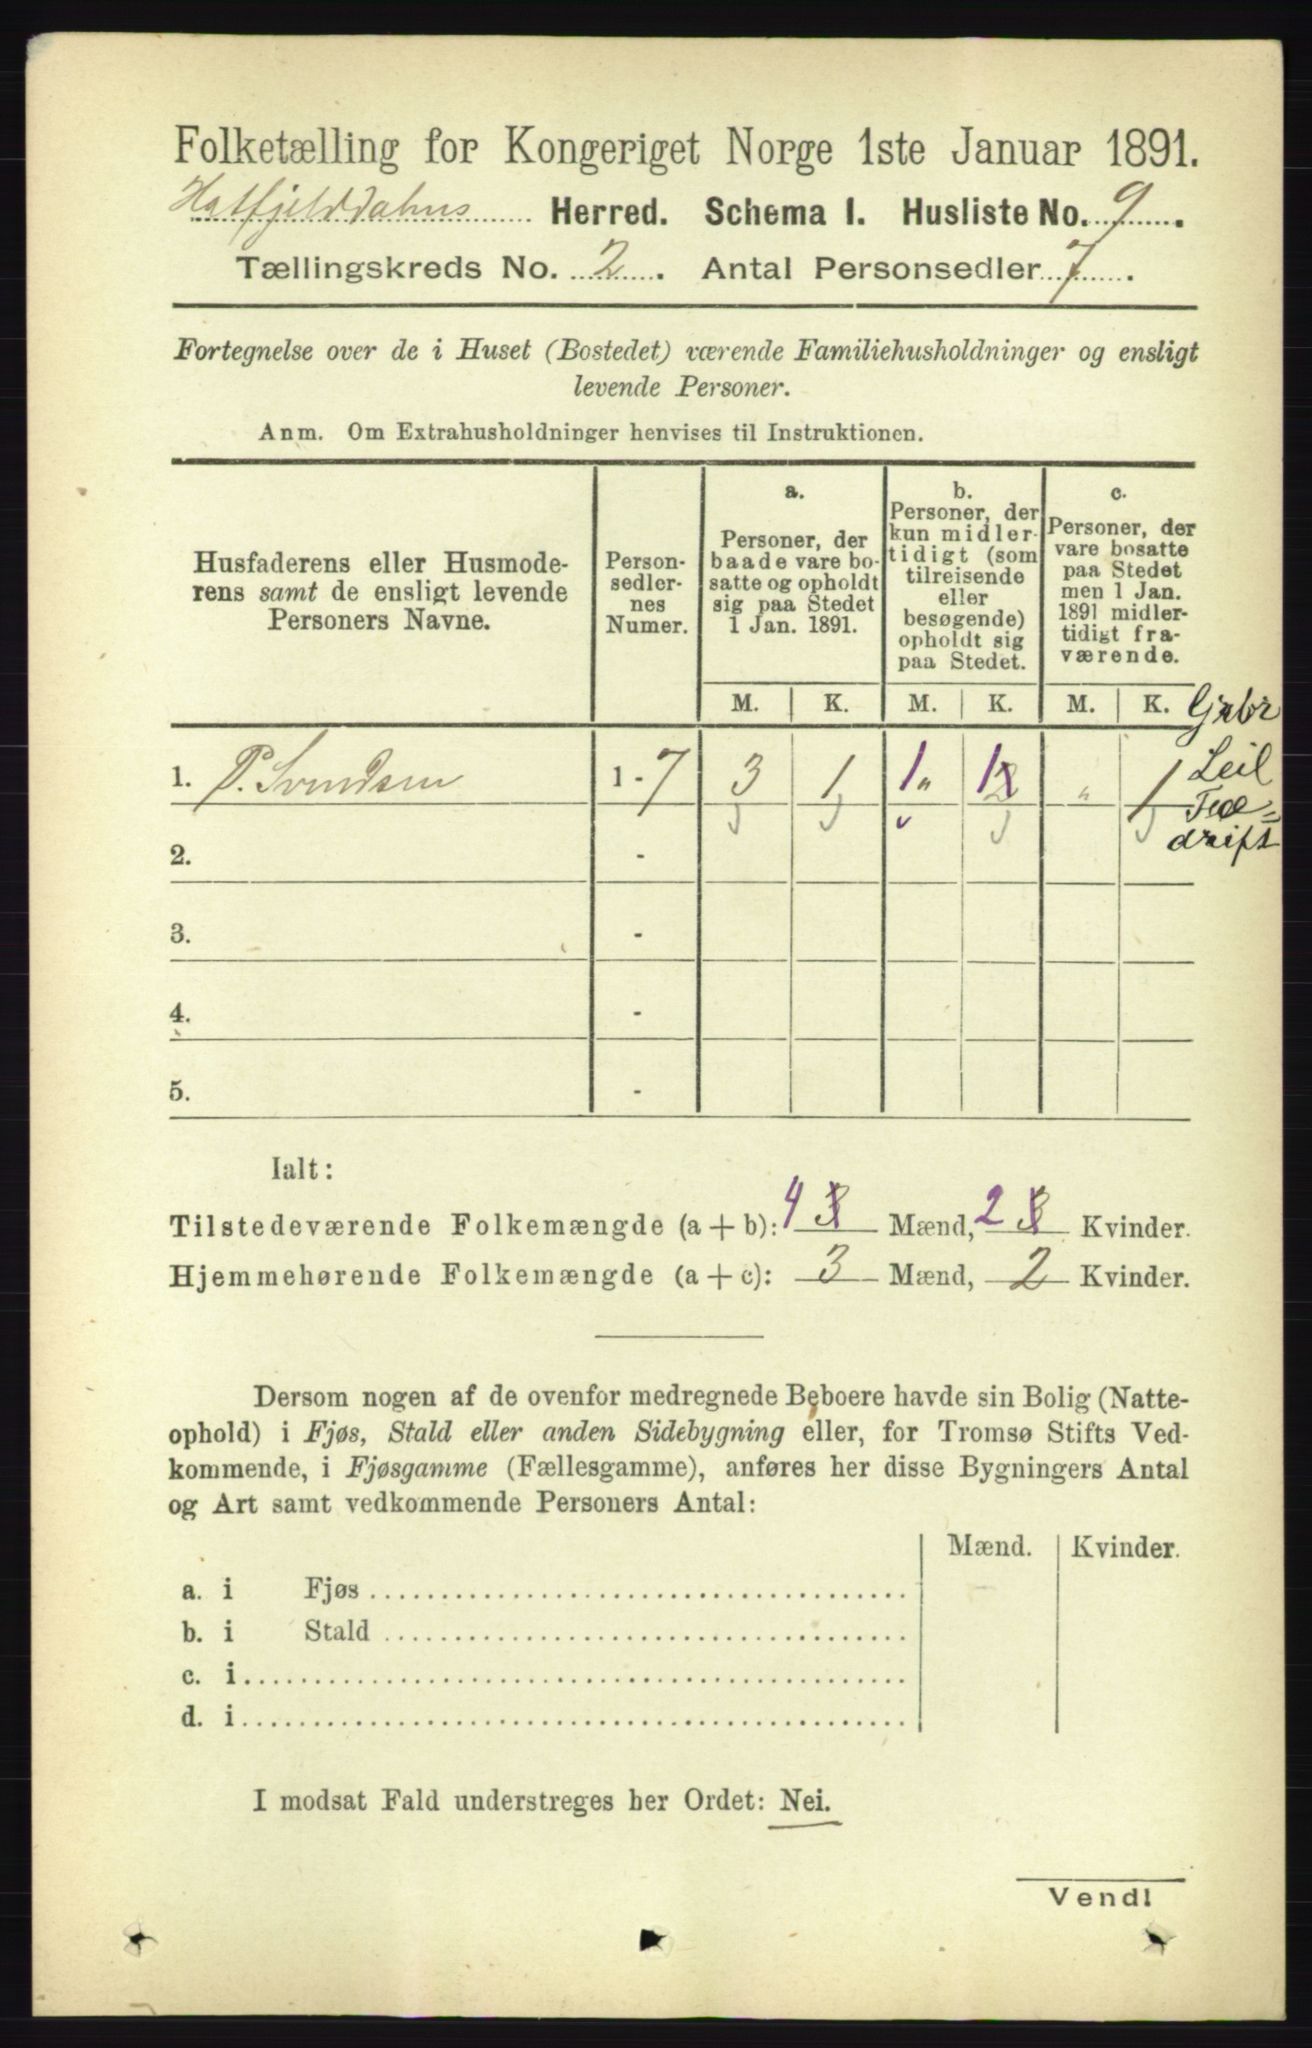 Folketælling for Kongeriget Norge 1ste Januar 1891.
Hatfjelddahns Herred. Schema I. Husliste No. 9.
Tællingskreds No. 2. Antal Personsedler 7.
Fortegnelse over de i Huset (Bostedet) værende Familiehusholdninger og ensligt
levende Personer.
Anm. Om Extrahusholdninger henvises til Instruktionen.
Husfaderens eller Husmode-
rens samt de ensligt levende
Personers Navne.
Person-
sedler-
nes
Numer.
a.
Personer, der
baade vare bo-
satte og opholdt
sig paa Stedet
1 Jan. 1891.
b.
Personer, der
kun midler-
tidigt (som
tilreisende
eller
besøgende)
opholdt sig
paa Stedet.
c.
Personer, der
vare bosatte
paa Stedet
men 1 Jan.
1891 midler-
tidigt fra-
værende.
M. K. M. K. M. K.
Grbr
Leil
Fæ=
drift
1. P. Svendsen 1 - 7 3 1 1 " 1 2 " 1
2. -
3. -
4. -
5. -
Ialt:
Tilstedeværende Folkemængde (a + b): 4 3 Mænd, 2 3 Kvinder.
Hjemmehørende Folkemængde (a + c): 3 Mænd, 2 Kvinder.
Dersom nogen af de ovenfor medregnede Beboere havde sin Bolig (Natte-
ophold) i Fjøs, Stald eller anden Sidebygning eller, for Tromsø Stifts Ved-
kommende, i Fjøsgamme (Fællesgamme), anføres her disse Bygningers Antal
og Art samt vedkommende Personers Antal:
Mænd. Kvinder.
a. i Fjøs
b. i Stald
c. i
d. i
I modsat Fald understreges her Ordet: Nei.
Vend!